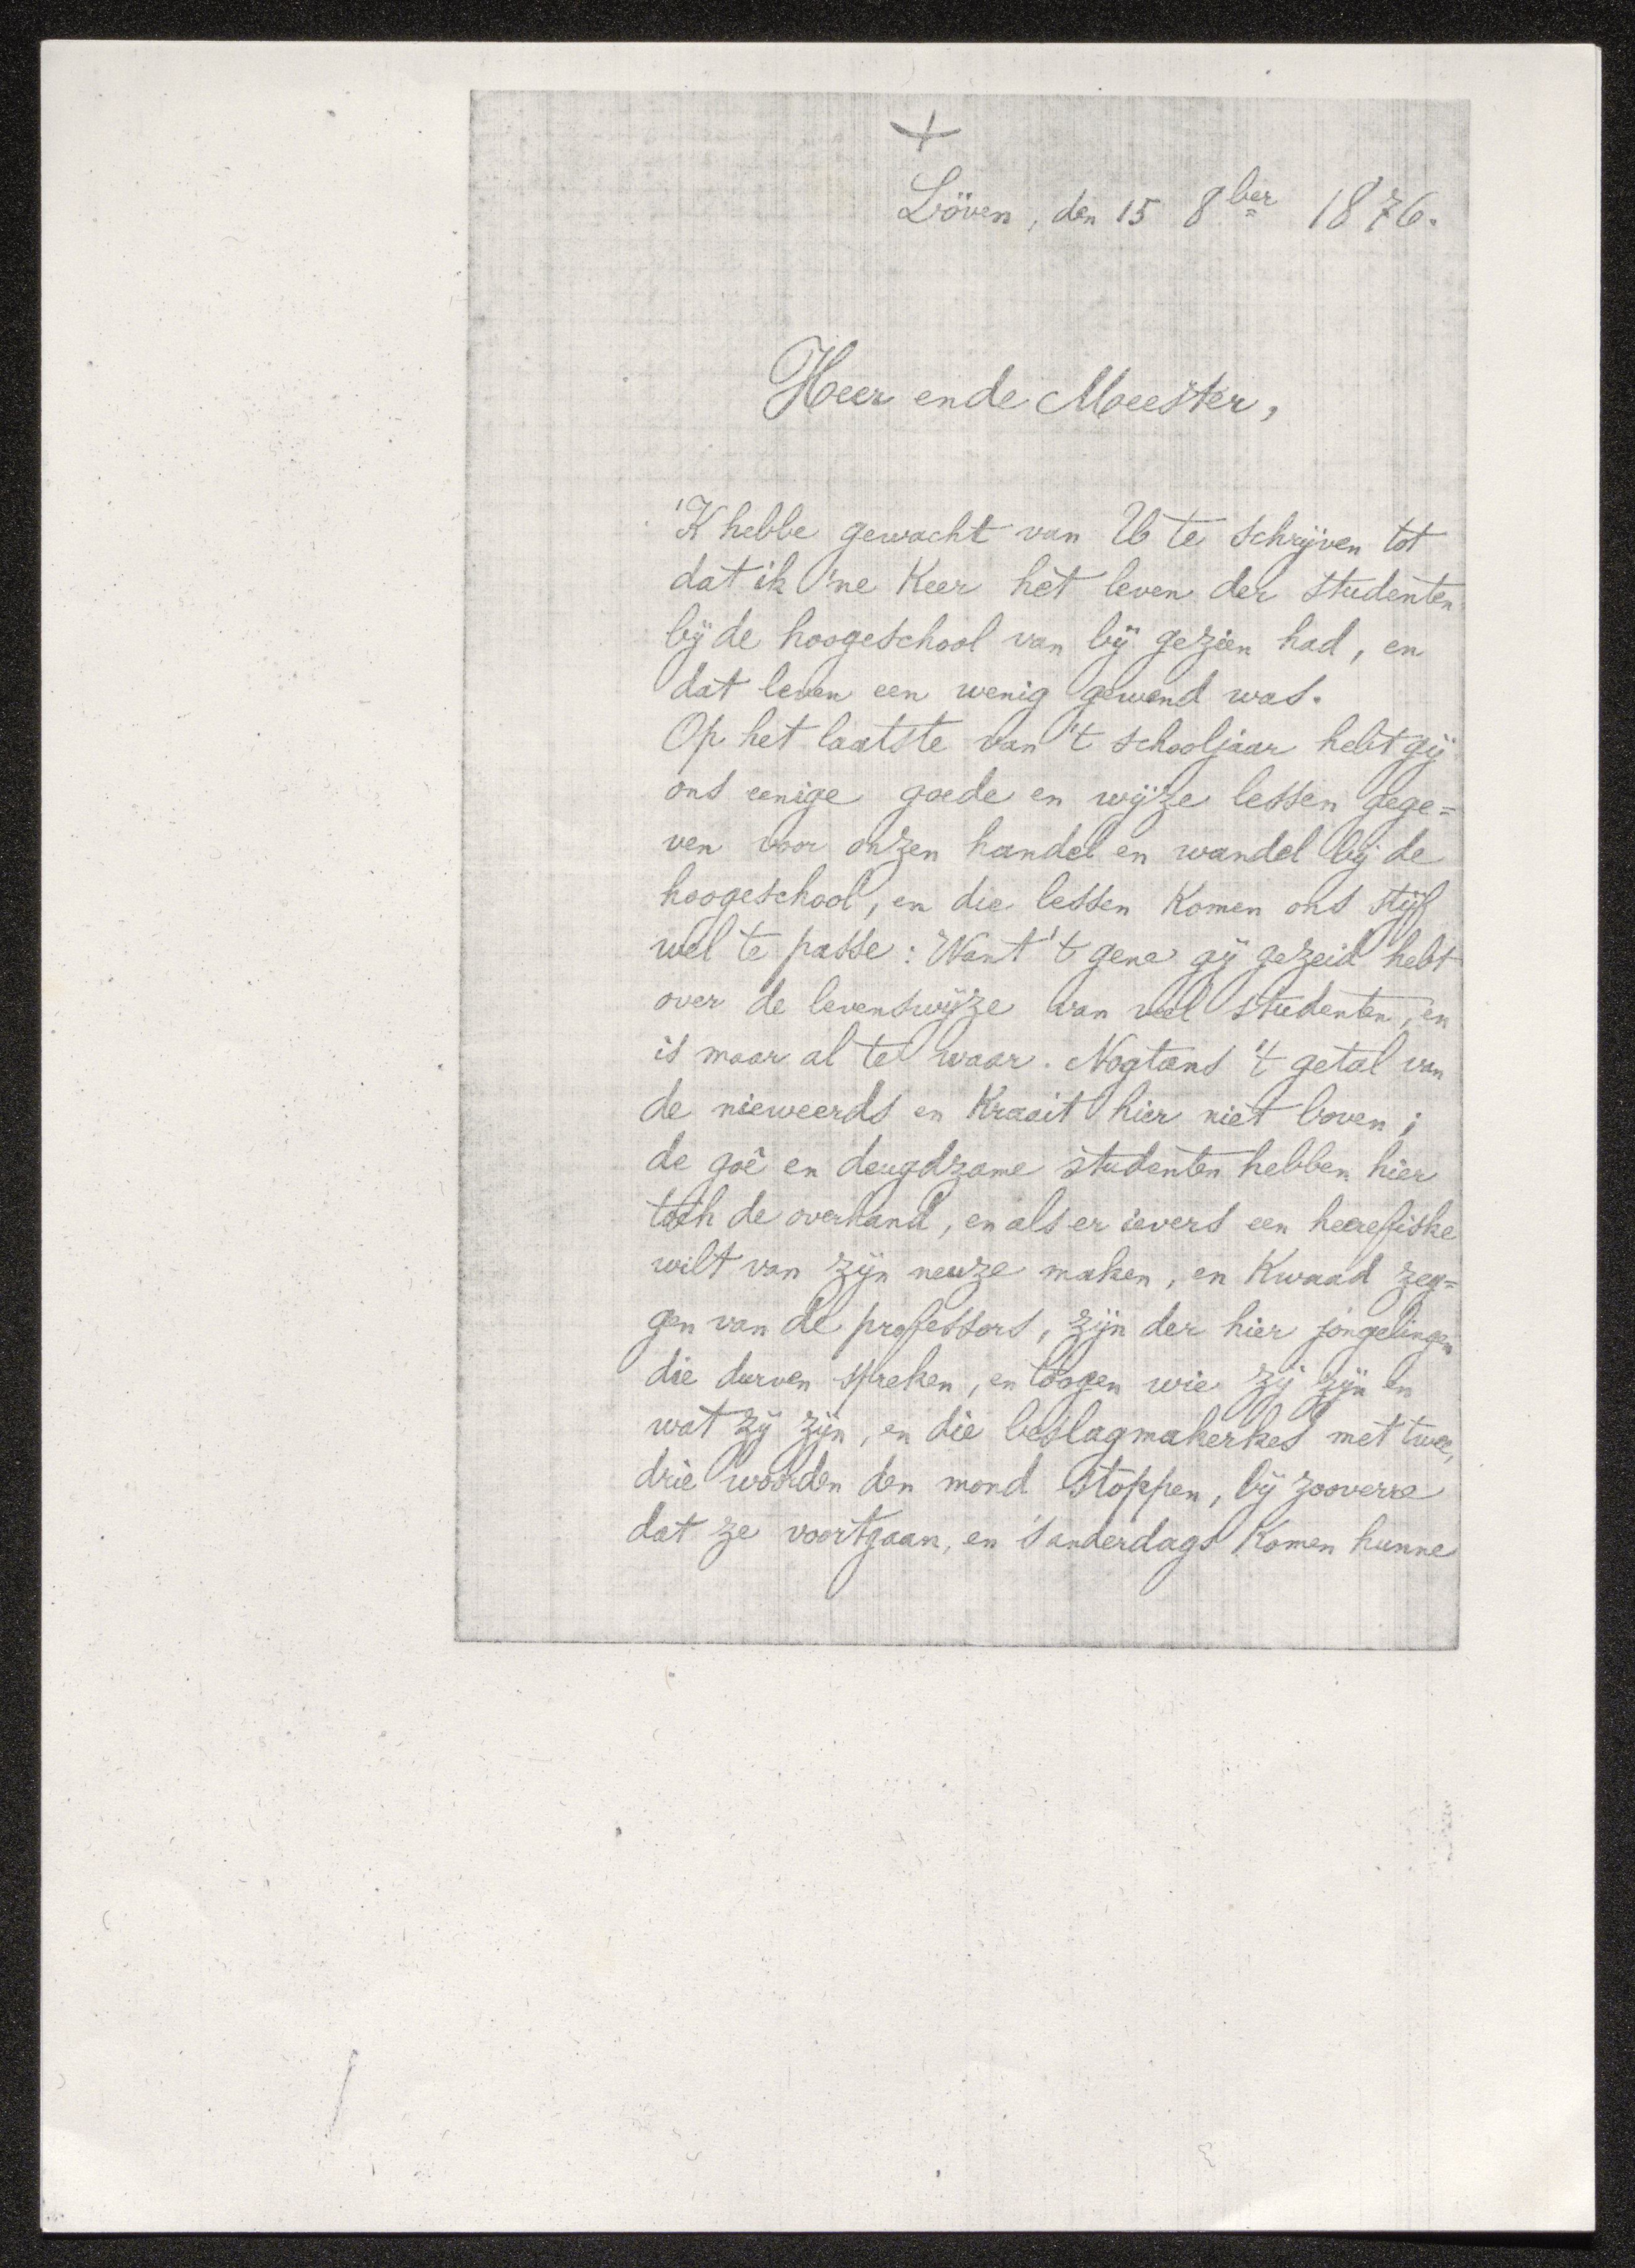 +
Löven, den 15 8ber 1876.
Heer ende Meester,
'K hebbe gewacht van U te schrijven tot
dat ik 'ne keer het leven der studenten
bij de hoogeschool van bij gezien had, en
dat leven een wenig gewend was.
Op het laatste van 't schooljaar hebt gij
ons eenige goede en wijze lessen gege=
ven voor onzen handel en wandel bij de
hoogeschool, en die lessen komen ons stijf
wel te passe: Want 't gene gij gezeid hebt
over de levenswijze van veel studenten, en
is maar al te waar. Nogtans 't getal van
de nieweerds en kraait hier niet boven;
de goê en deugdzame studenten hebben hier
toch de overhand, en als er ievers een heerefiske
wilt van zijn neuze maken, en kwaad zeg=
gen van de professors, zijn der hier jongelingen
die durven spreken, en toogen wie zij zijn en
wat zij zijn, en die beslagmakerkes met twee,
drie woorden den mond stoppen, bij zooverre
dat ze voortgaan, en 's anderdags komen hunne